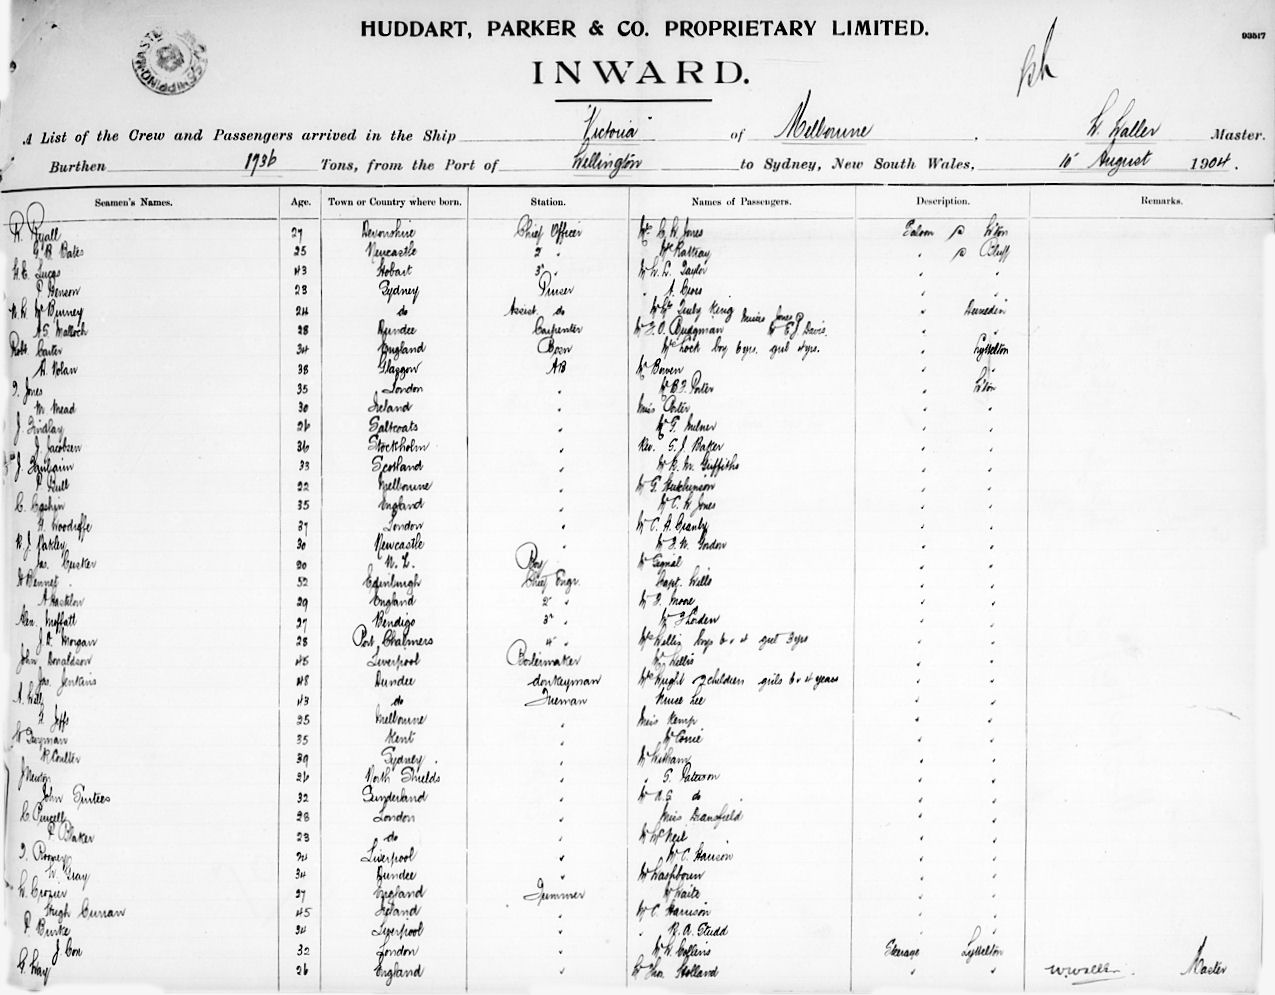 HUDDART, PARKER & CO. PROPRIETARY LIMITED.
93517
INWARD.
A List of the Crew and Passengers arrived in the Ship "Victoria" of Melbourne, W. Waller Master.
Burthen 1736 Tons, from the Port of Wellington to Sydney, New South Wales, August 1904.
Seamen's Names. Age. Town or Country where born. Station. Names of Passengers. Description. Remarks.
R. Ryall 27 Devonshire Chief Officer Mr Jones Saloon W'ton
Bates 25 Newcastle 2 " Mr Rattray " Bluff
Lucas 43 Hobart 3 " Mr Taylor " "
P. Henson 23 Sydney Purser " A. " "
McBurney 24 do Assist do King Misses Jones " Dunedin
A.S. Malloch 28 Dundee Carpenter Mr Bridgman Davis " "
Robt Carter 34 England Bosn Mrs Lock boy 6 yrs. girl 4 yrs. " Lyttelton
Nolan 38 Glasgow AB Mr Bowen " "
Jones 35 London " Porter " W'ton
M. Mead 30 Ireland " Miss Porter " "
J. Findlay 26 Saltcoats " Mr G. Milner " "
J. Jacobsen 36 Stockholm " Rev. J. Baker " "
J. 33 Scotland " Griffiths " "
P. Bull 22 Melbourne " Mr G. Hutchinson " "
C. 35 England " Mr C. W. Jones " "
Woodriffe 37 London " Mr C. A. " "
R. J. Oakley 30 Newcastle " Gordon " "
Jas. Cusker 20 N. Z. Boy Mr Signal " "
Bennet 52 Edinburgh Chief Engr. Capt. Wells " "
29 England 2 " Moore " "
Alex. Moffatt 27 Bendigo 3 " " "
J. D. Morgan 28 Port Chalmers 4 " Mrs Wellis boys 6 & 4 girl 3 yrs " "
John Donaldson 45 Liverpool Boilermaker Mr Wellis " "
Jas. Jenkins 48 Dundee donkeyman Mrs Wright 2 children girls 6 & 4 years " "
A. 43 do Fireman Nurse Lee " "
Jeffs 25 Melbourne " Miss Kemp " "
35 Kent " " "
R. Coulter 39 Sydney " " "
J. Newton 26 North Shields " " G. Paterson " "
John Surtees 32 Sunderland " Mr A.G. do " "
C. Purcell 28 London " Miss Dransfield " "
P. Blaker 23 do " Mr McNeil " "
Rooney 24 Liverpool " Mr C. Hanson " "
W. Gray 34 Dundee " Mr Washbourn " "
W. Crozier 27 England Trimmer Waite " "
Hugh Curran 45 Ireland " Mr C. Harrison " "
P. Burke 24 Liverpool " " R. A. Studd " "
J. Cox 32 London " Mr W. Collins Steerage Lyttelton
G. Way 26 England " Mr Thos Holland " " W. Waller Master